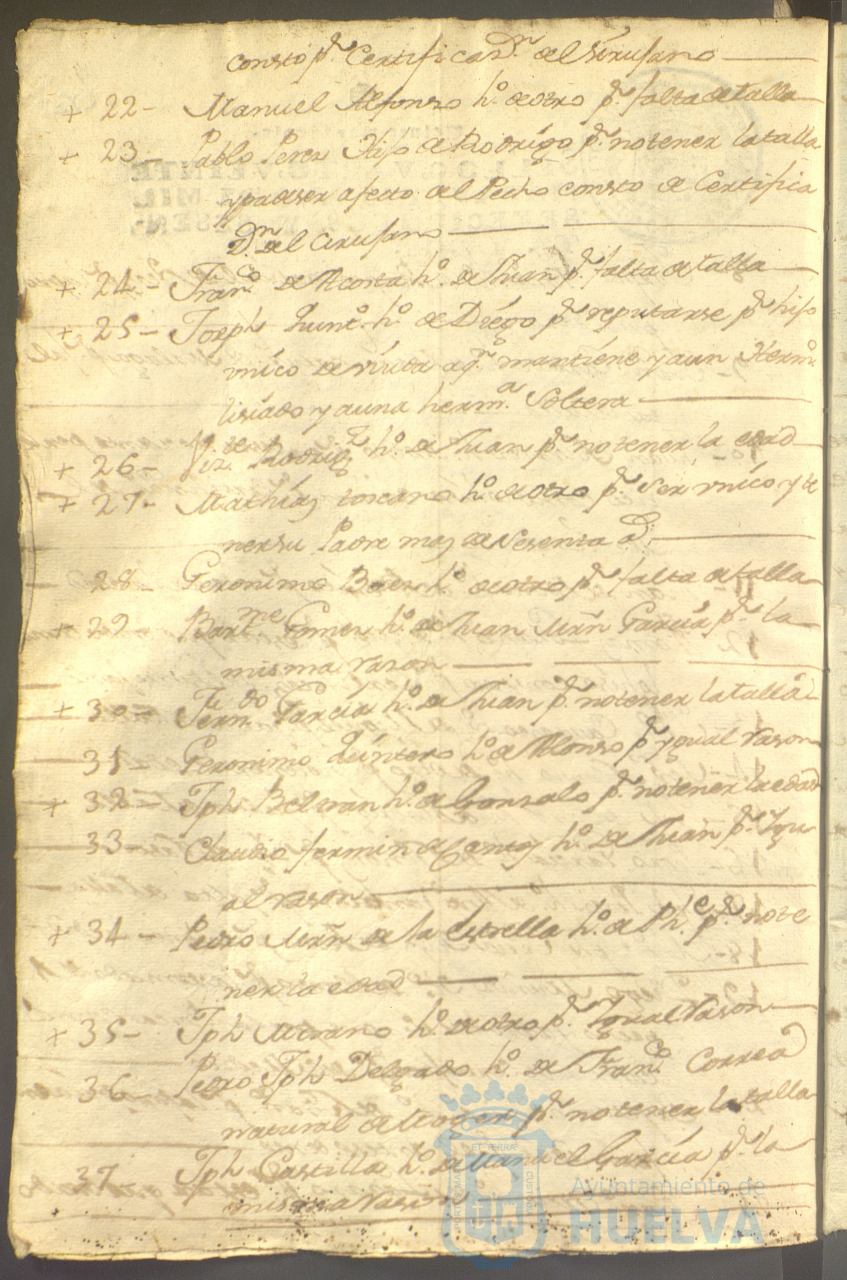 consto pr. Certificadn. del Sirusano
+ 22- Manuel Alfonso ho. de otro pr. falta de talla
+ 23- Pablo Perez Hijo de Rodrigo pr. no tener la talla
y padeser afecto del Pecho consto de Certifica
Dn. del Cirusano
+ 24- Franco. de Acosta ho. de Juan pr. falta de talla
+ 25- Joseph Quinto. ho. de Diego pr. reputarse pr. hijo
vnico de viuda a qn. mantiene y a un Hermo.
lisiado y a una herma. Soltera
+ 26- Vizte. Rodrigz ho. de Juan pr. no tener la edad
+ 27- Mathias toscano ho. de otro pr. Ser vnico y te
ner su Padre mas de sesenta as.
28- Geronimo Baez ho. de otro pr. falta de talla
+ 29- Barme Gomez ho. de Juan Mrn Garcia pr. la
misma rason
+ 30- Ferndo. Garcia ho. de Juan pr. no tener la talla
31- Geronimo Quintero ho. de Alonso pr. ygual rason
+ 32- Jph. Beltran ho. de Gonsalo pr. no tener la edad
33- Claudio fermin de ho. de Juan pr. Igu
al rason
+ 34- Pedro Mrn de la Estrella ho. de Phe. pr. no te
ner la edad
+ 35- Jph Merano ho. de otro pr. Igual rason
36 Pedro Jph Delgado ho. de Franco. Correa
natural de Moguer pr. no tener la talla
37- Jph Castilla ho. de Manuel Garcia pr. la
misma rason
Ayuntamiento de
HUELVA